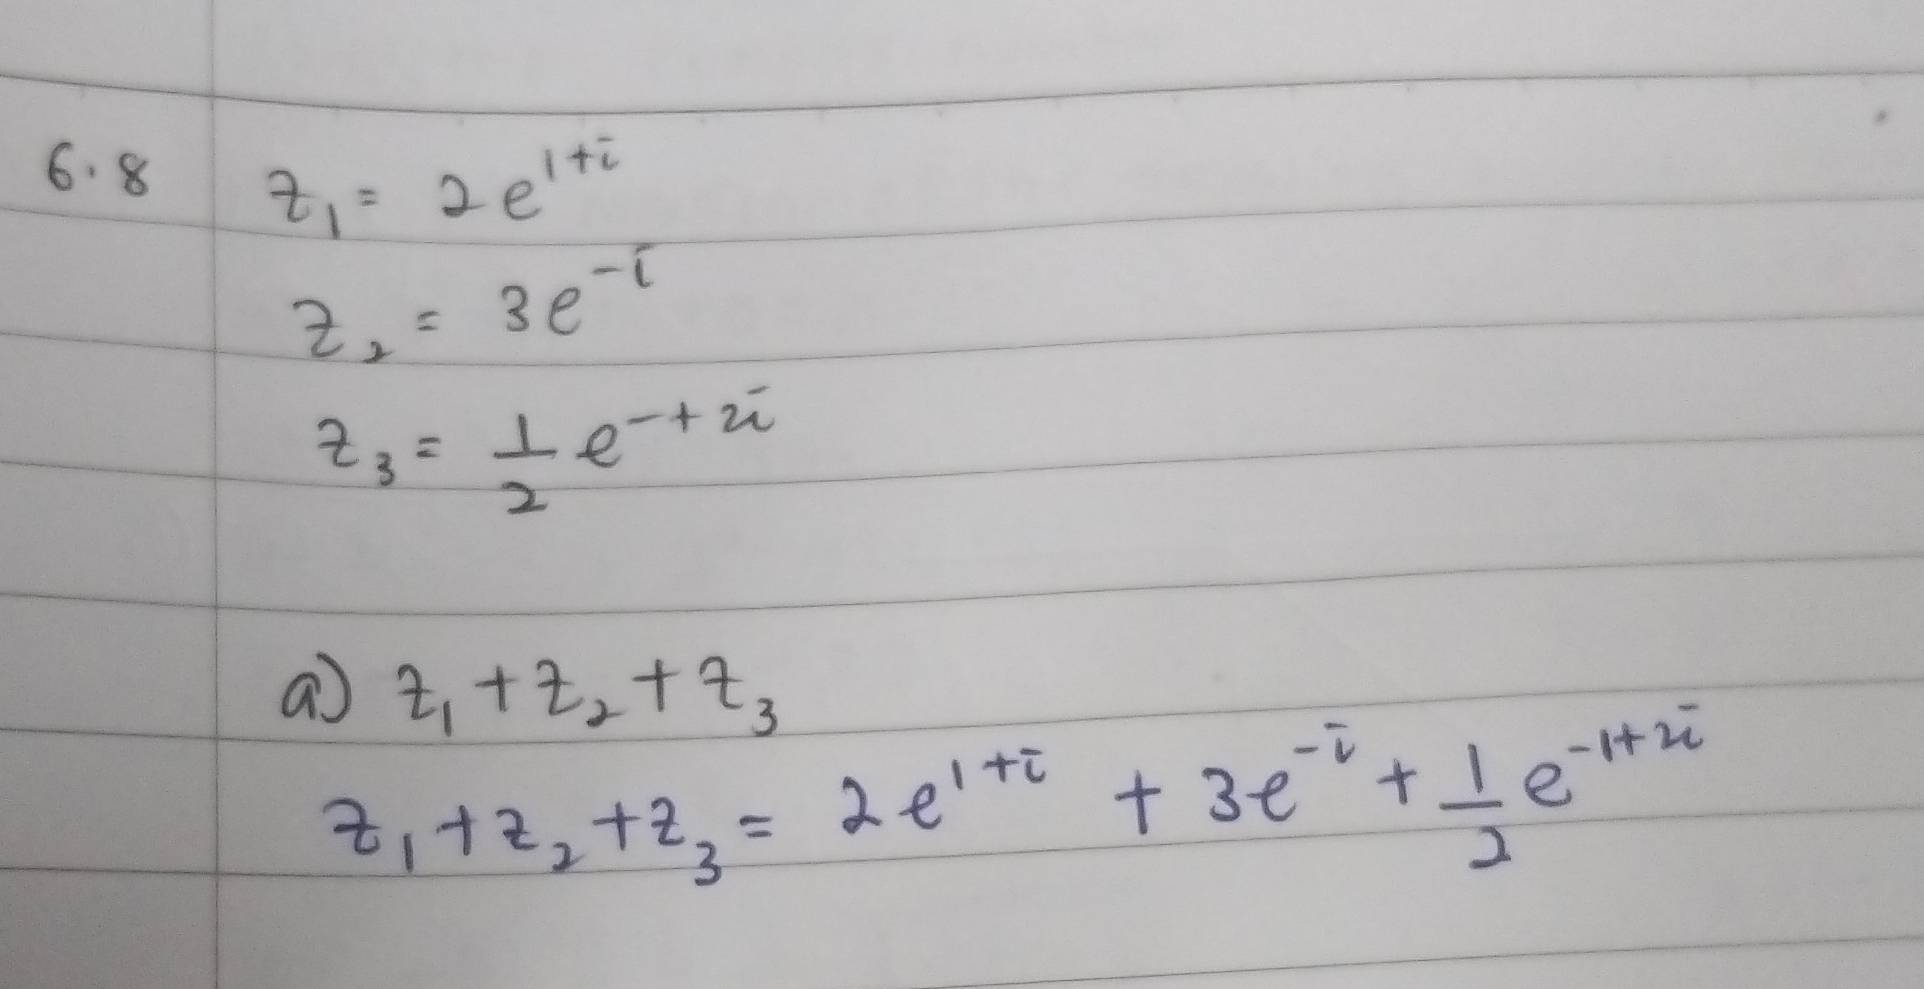 6.8 z₁ = 2e^{1+i}
z₂ = 3e^{-i}
z₃ = 1/2 e^{-+2i}
a) z₁ + z₂ + z₃
z₁ + z₂ + z₃ = 2e^{1+i} + 3e^{-i} + 1/2 e^{-1+2i}